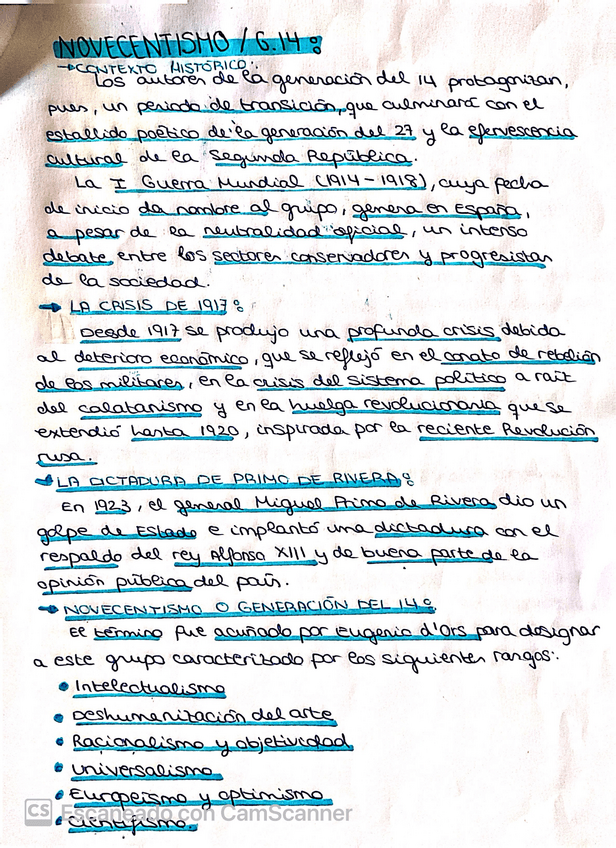 NOVECENTISMO / G.14:
→CONTEXTO HISTÓRICO:
Los autores de la generación del 14 protagonizan,
pues, un periodo de transición, que culminará con el
estallido poético de la generación del 27 y la efervescencia
cultural de la Segunda República.
La I Guerra Mundial (1914-1918), cuya fecha
de inicio da nombre al grupo, genera en España,
a pesar de la neutralidad oficial, un intenso
debate entre los sectores conservadores y progresistas
de la sociedad.
→ LA CRISIS DE 1917:
Desde 1917 se produjo una profunda crisis debida
al deterioro económico, que se reflejó en el conato de rebelión
de los militares, en la crisis del sistema político a raíz
del catalanismo y en la huelga revolucionaria que se
extendió hasta 1920, inspirada por la reciente Revolución
rusa.
→LA DICTADURA DE PRIMO DE RIVERA:
En 1923, el general Miguel Primo de Rivera dio un
golpe de Estado e implantó una dictadura con el
respaldo del rey Alfonso XIII y de buena parte de la
opinión pública del país.
→ NOVECENTISMO O GENERACIÓN DEL 14:
El término fue acuñado por Eugenio d'Ors para designar
a este grupo caracterizado por los siguientes rasgos:
• Intelectualismo
• Deshumanización del arte
• Racionalismo y objetividad
• Universalismo
• Europeísmo y optimismo
CS Escaneado con CamScanner
• Cientifismo